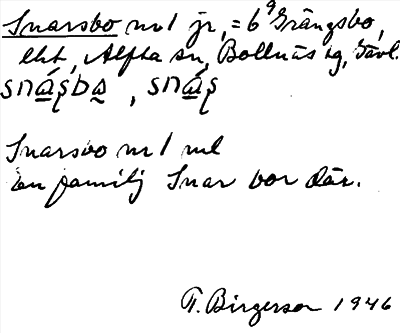 Snarsbo nr 1 jr, = 6⁹ Grängsbo,
eht, Alfta sn, Bollnäs tg, Gävl.
snáʂbo̲, snáʂ
Snarsbo nr 1 ml
En familj Snar bor där.
T. Birgerson 1946